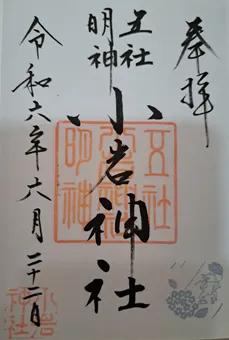 奉拝
五社
明神
小岩神社
令和六年六月二十二日
五社
小岩神社
明神
小岩
神社